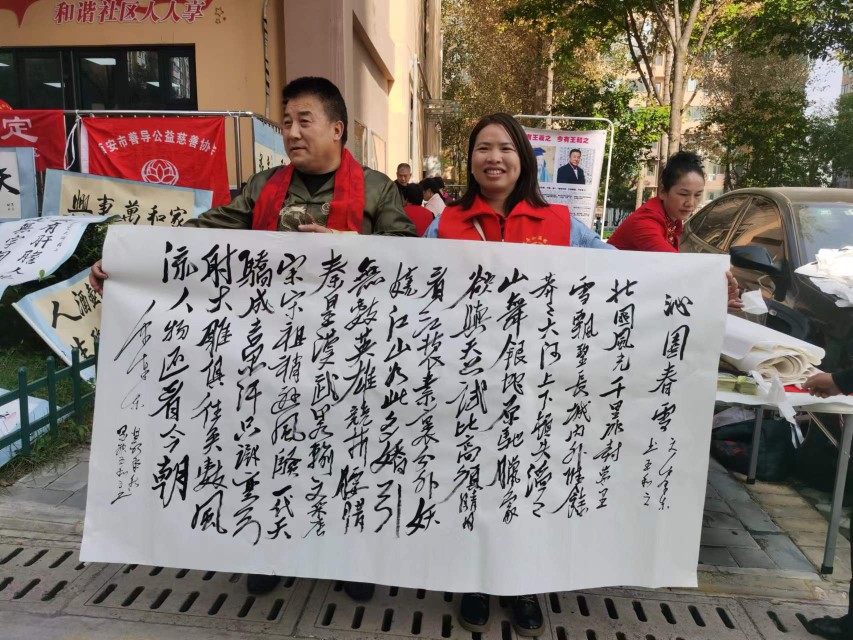 和谐社区人人享
定
安市善导公益慈善协
興事萬和家
今有王和之
沁園春雪
毛泽东
北國風光千里冰封万里
雪飘望長城内外惟餘
莽々大河上下頓失滔々
山舞银蛇原馳腊象
欲與天公試比高须晴日
看红装素裹分外妖
娆江山如此多娇引
無数英雄競折腰惜
秦皇漢武畧输文采唐
宋宗祖稍逊风骚一代天
驕成吉思汗只識弯弓
射大雕俱往矣数風
流人物还看今朝